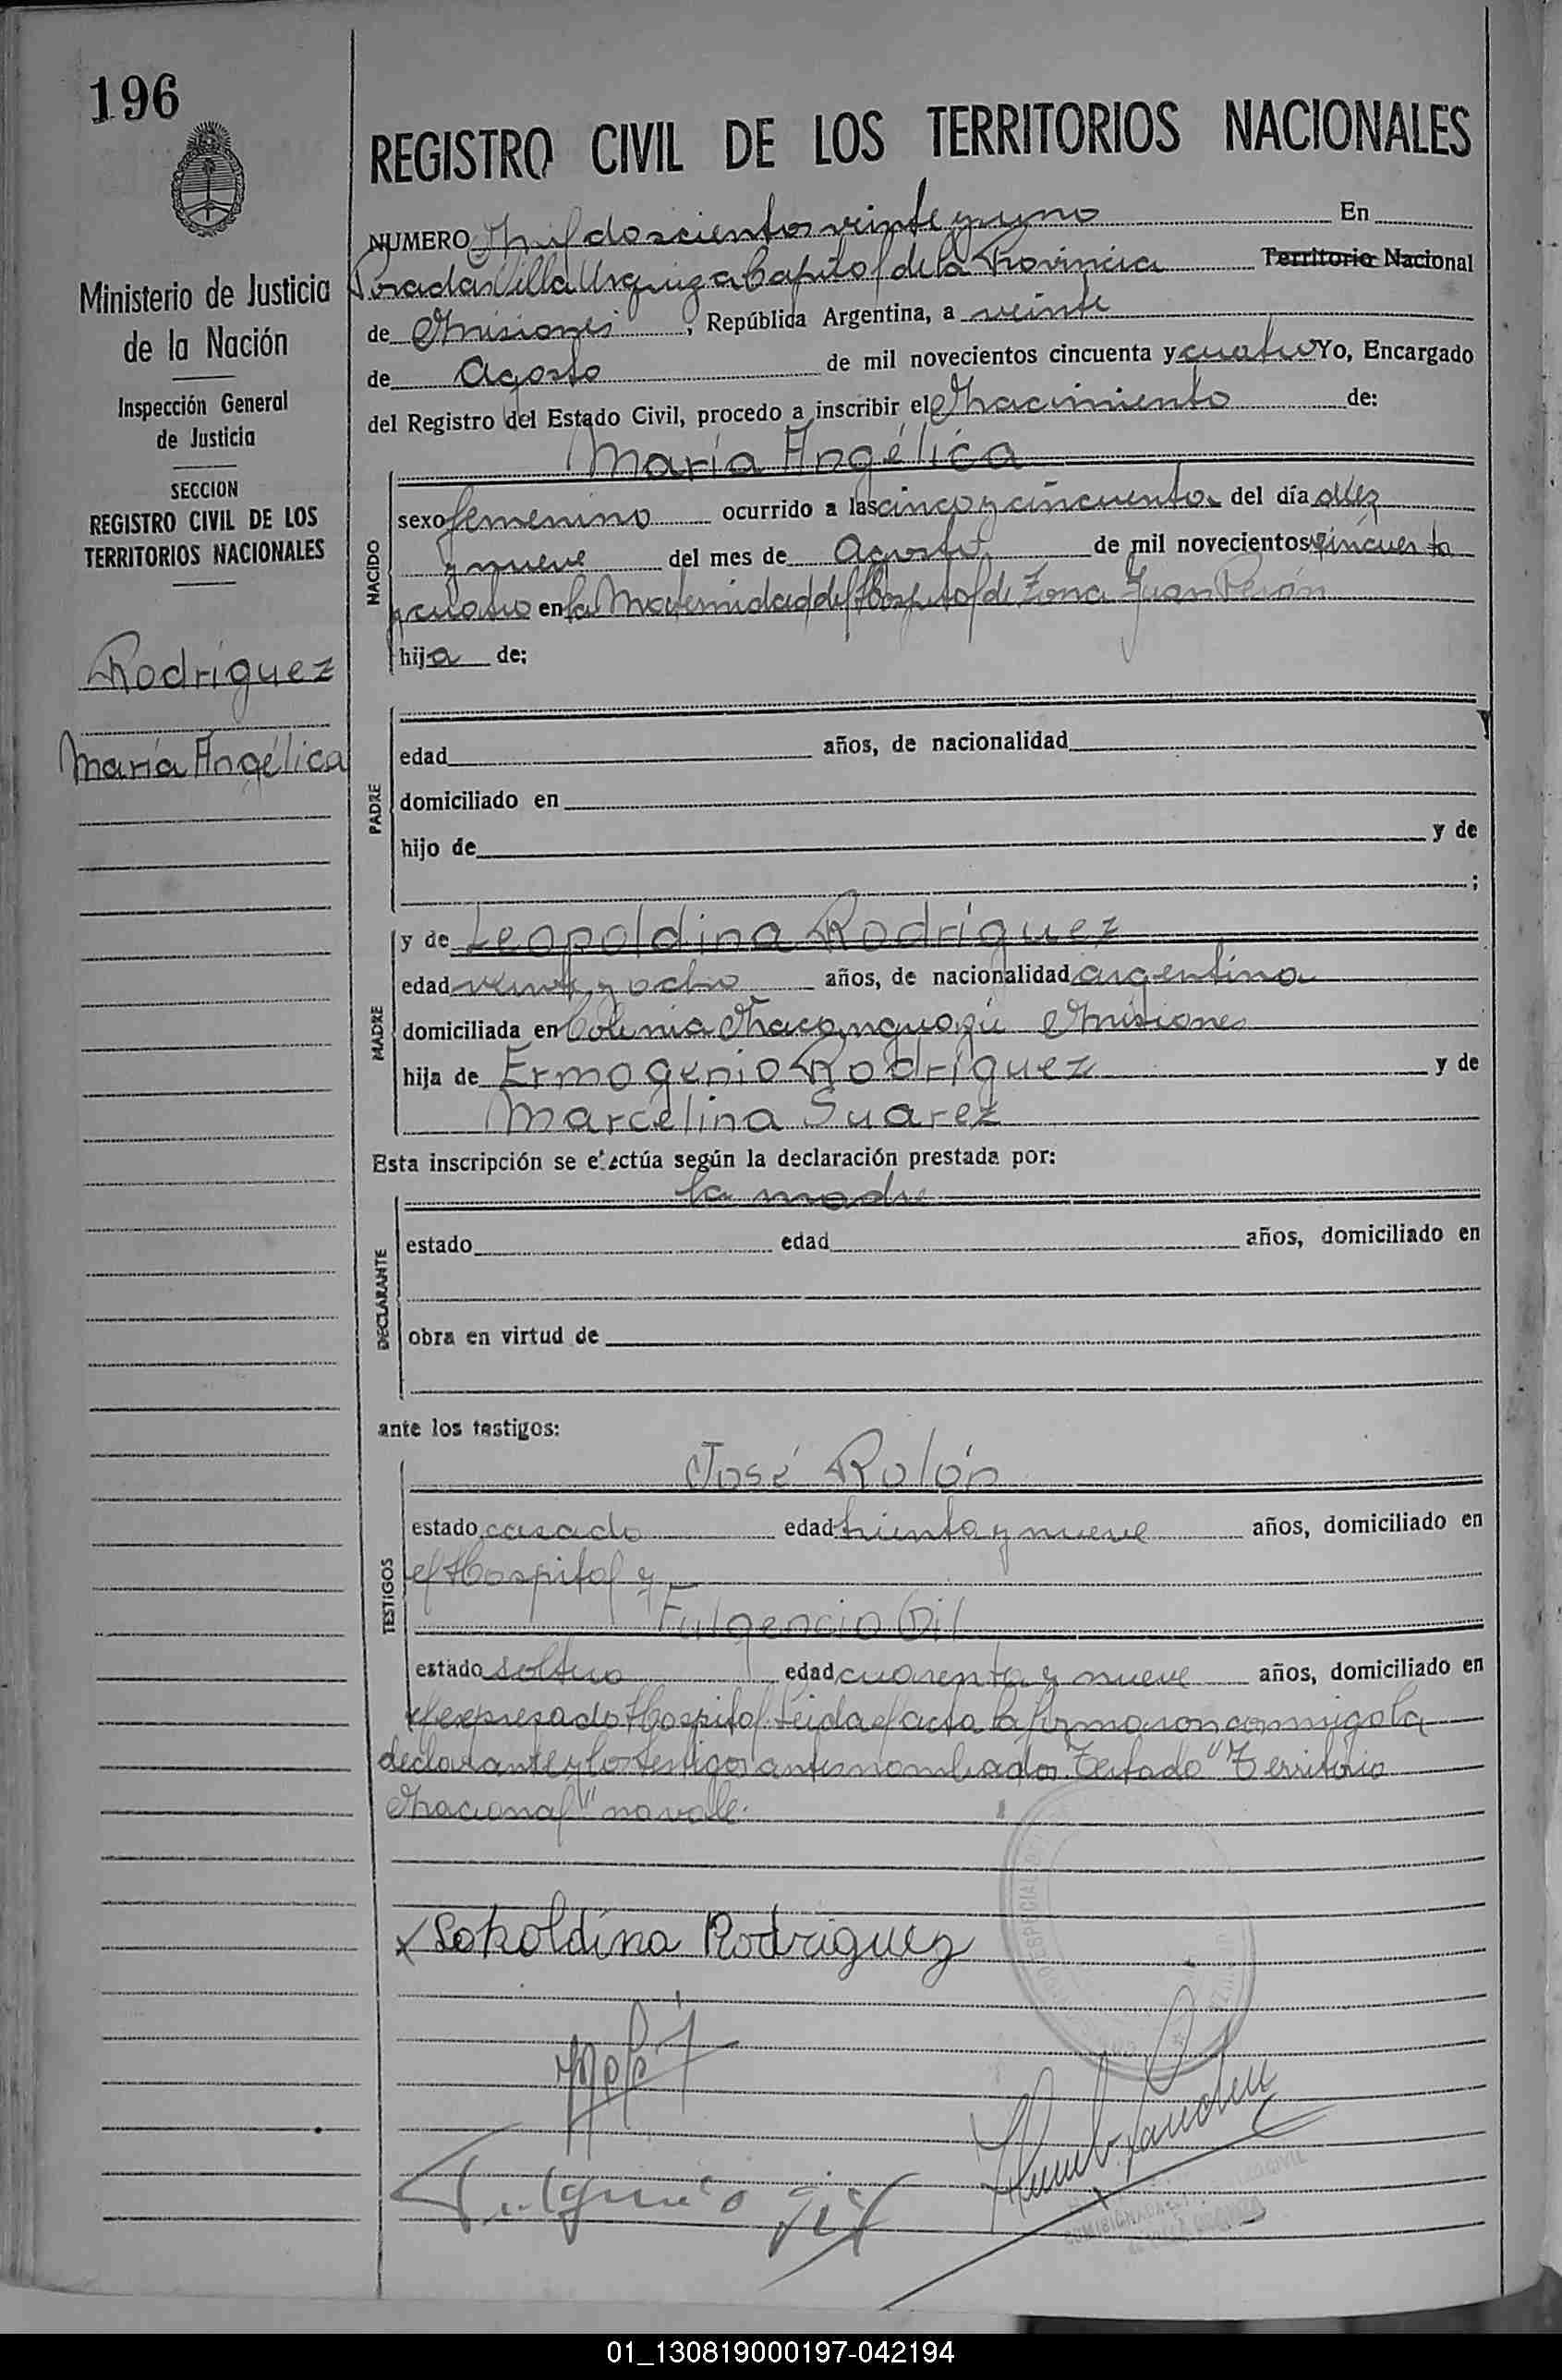 196
REGISTRO CIVIL DE LOS TERRITORIOS NACIONALES
Ministerio de Justicia
de la Nación
Inspección General
de Justicia
SECCION
REGISTRO CIVIL DE LOS
TERRITORIOS NACIONALES
Rodríguez
María Angélica
NUMERO Mil doscientos veinte y uno En
Posadas Villa Urquiza Capital de la Provincia Territorio Nacional
de Misiones, República Argentina, a veinte
de Agosto de mil novecientos cincuenta y cuatro Yo, Encargado
del Registro del Estado Civil, procedo a inscribir el Nacimiento de:
María Angélica
NACIDO
sexo femenino ocurrido a las cinco y cincuenta del día diez
y nueve del mes de Agosto de mil novecientos cincuenta
y cuatro en la Maternidad del Hospital de Zona Juan Perón
hija de:
PADRE
edad años, de nacionalidad
domiciliado en
hijo de y de
;
MADRE
y de Leopoldina Rodríguez
edad veinte y ocho años, de nacionalidad argentina
domiciliada en Colonia Ñacanguazú Misiones
hija de Ermogenio Rodríguez y de
Marcelina Suarez
Esta inscripción se efectúa según la declaración prestada por:
la madre
DECLARANTE
estado edad años, domiciliado en
obra en virtud de
ante los testigos:
José Rolón
TESTIGOS
estado casado edad treinta y nueve años, domiciliado en
el Hospital y
Fulgencio Gil
estado soltero edad cuarenta y nueve años, domiciliado en
el expresado Hospital. Leida el acta la firmaron conmigo la
declarante y los testigos antes nombrados. Testado "Territorio
Nacional" no vale.
x Lopoldina Rodriguez
Fulgencio Gil
01_130819000197-042194